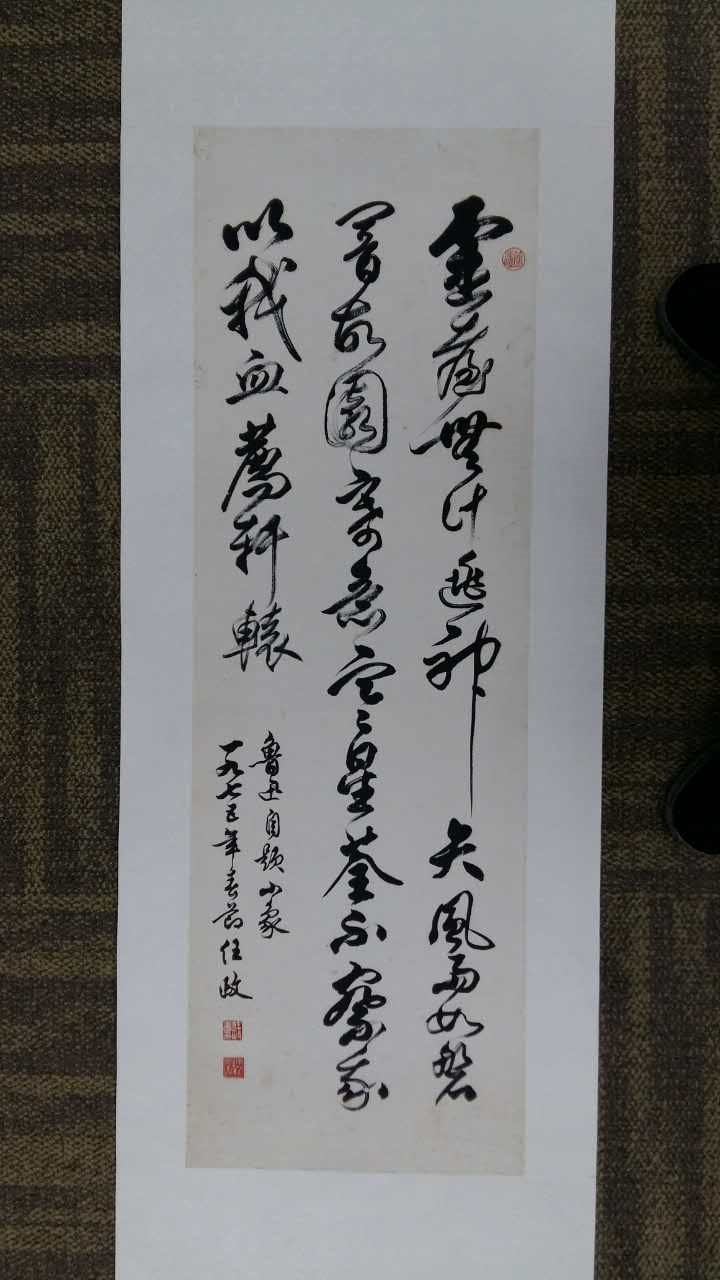 靈臺無計逃神矢風雨如磐
闇故園寄意寒星荃不察我
以我血薦軒轅
魯迅自題小象
一九七五年春節任政